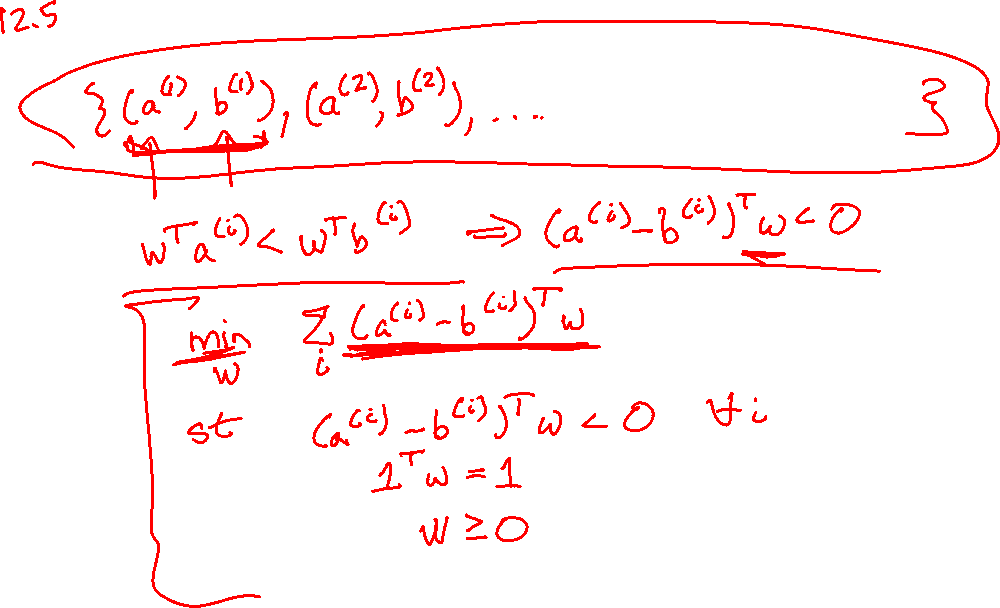 12.5
{(a^(1), b^(1)), (a^(2), b^(2)), .... }
w^T a^(i) < w^T b^(i) ⇒ (a^(i) - b^(i))^T w < 0
min_w Σ_i (a^(i) - b^(i))^T w
st (a^(i) - b^(i))^T w < 0 ∀i
1^T w = 1
w ≥ 0